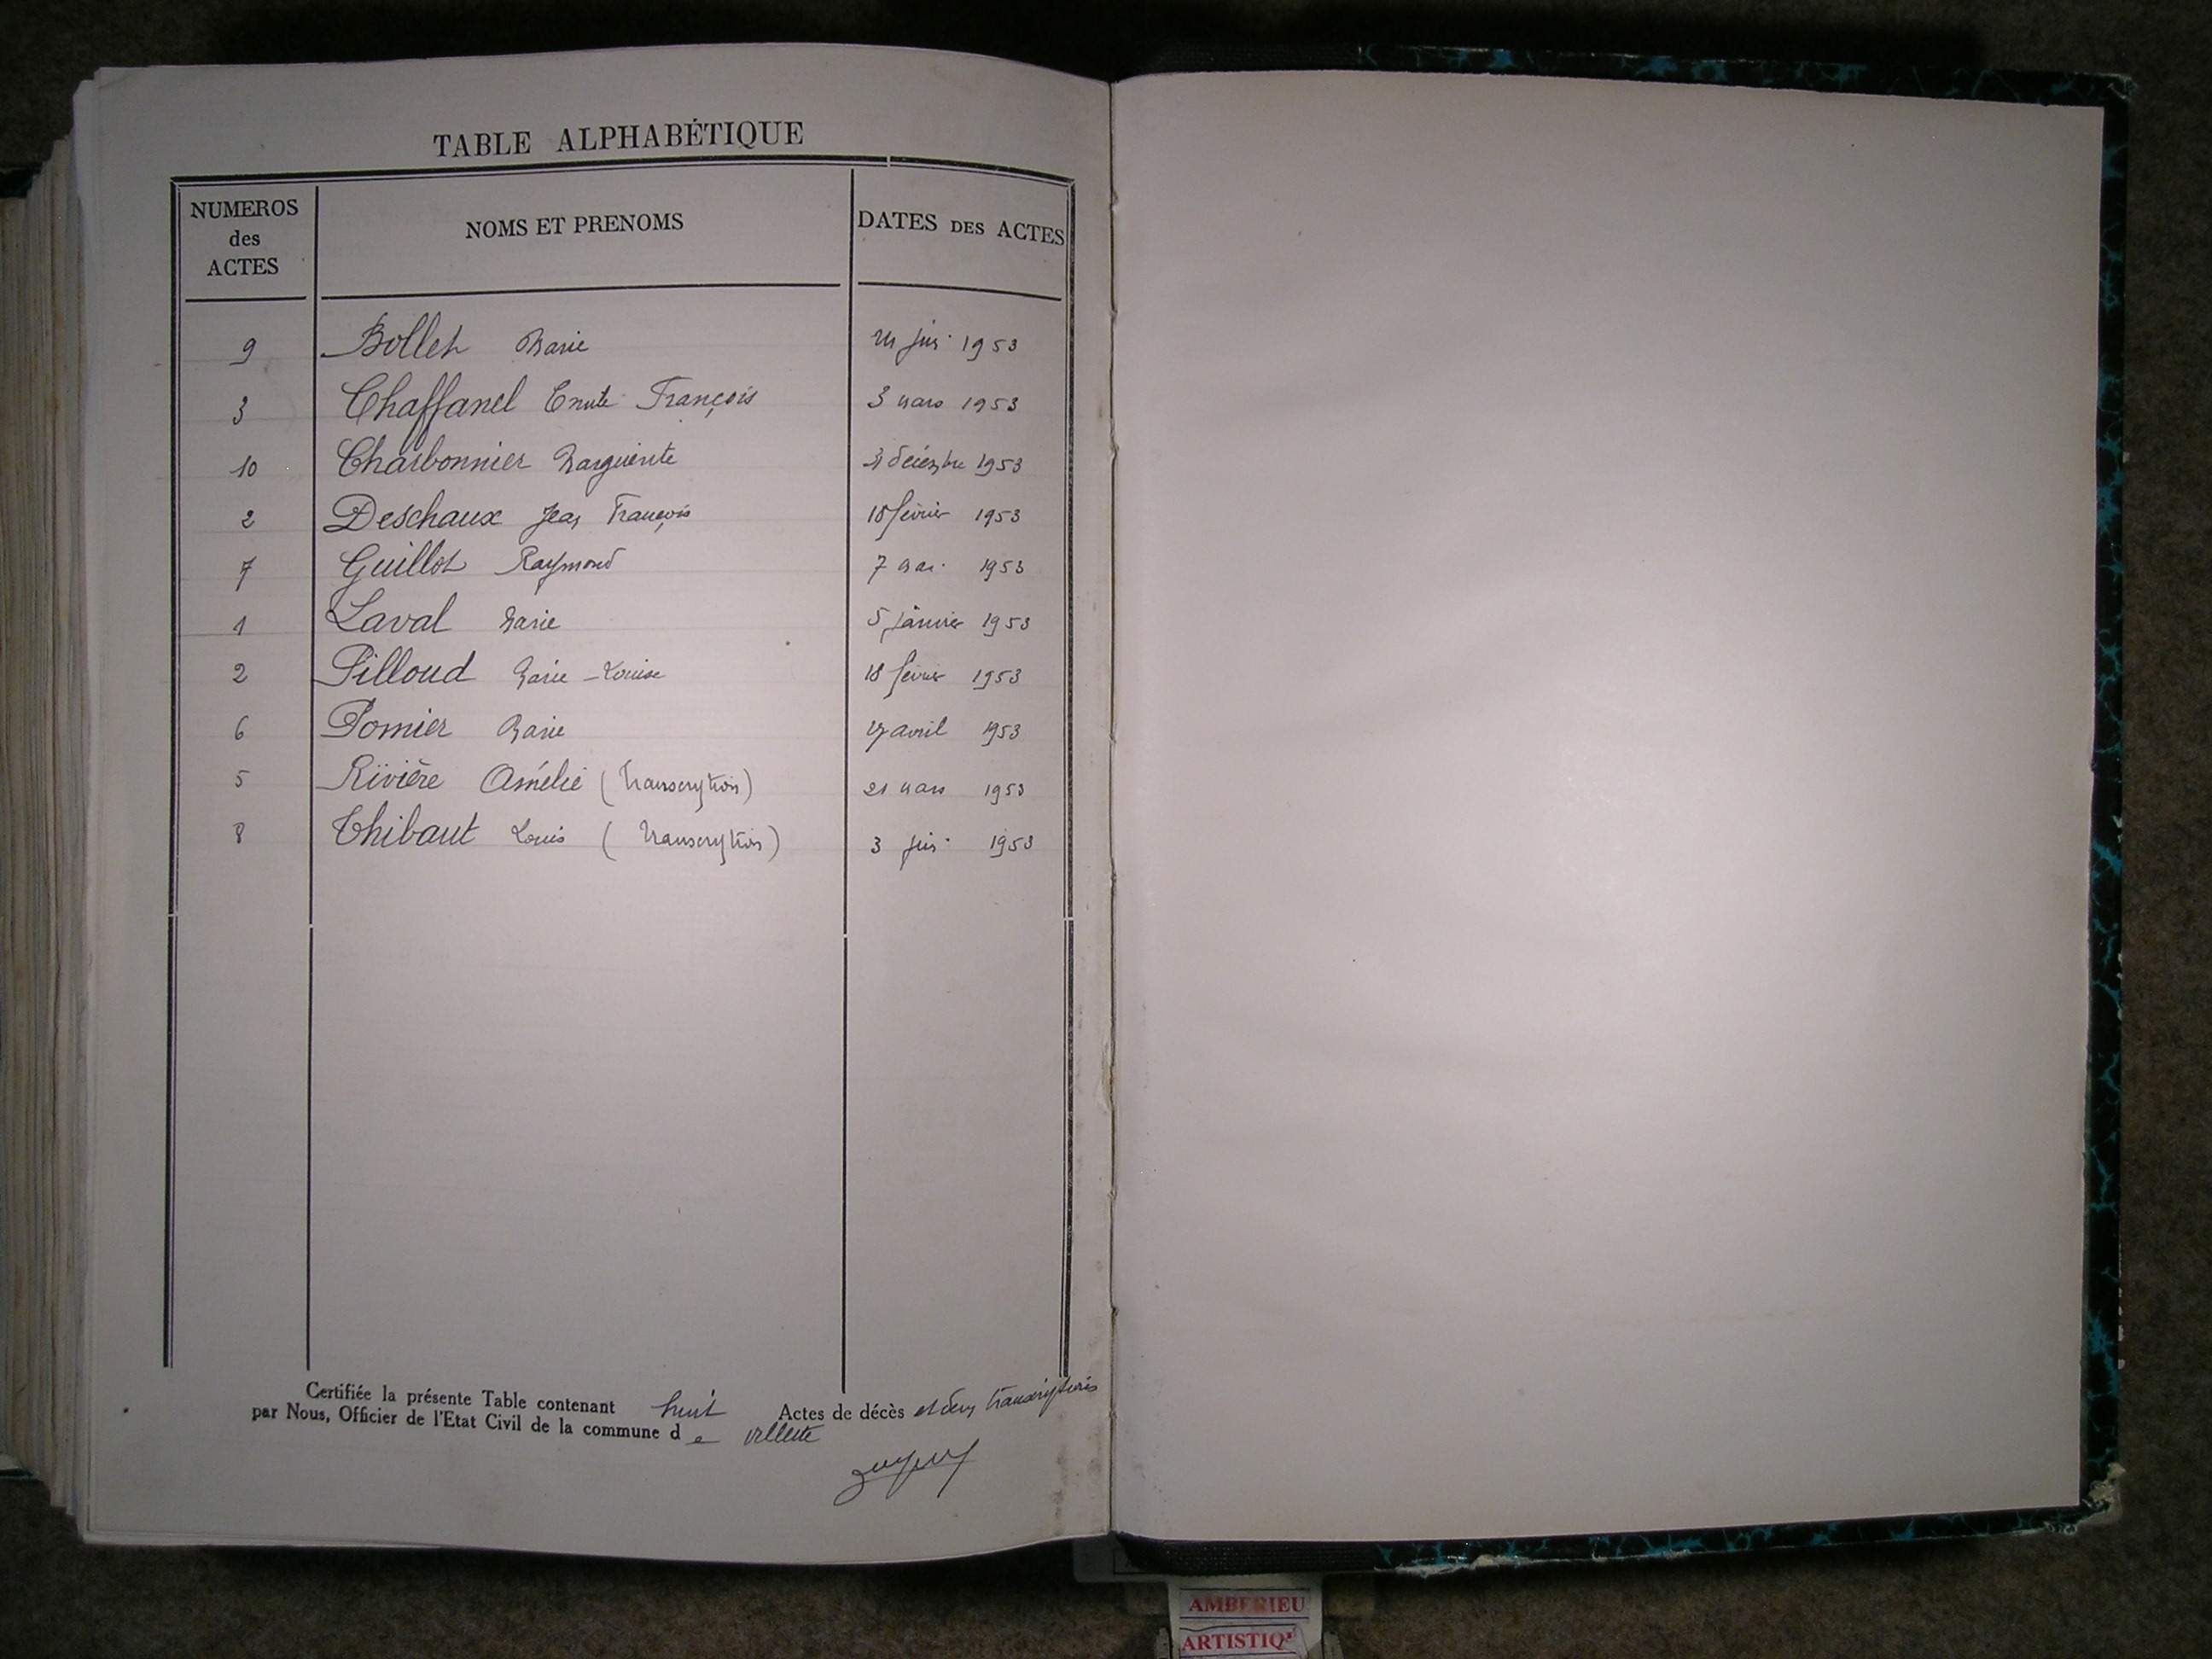 TABLE ALPHABÉTIQUE
NUMEROS des ACTES NOMS ET PRENOMS DATES DES ACTES
9 Bollet Marie juin 1953
3 Chaffanel Emile François 3 mars 1953
10 Charbonnier Marguerite décembre 1953
2 Deschaux Jean François 18 février 1953
7 Guillot Raymond 7 mai 1953
1 Laval Marie 5 janvier 1953
2 Pilloud Marie-Louise 18 février 1953
6 Pomier Marie avril 1953
5 Rivière Amélie (transcription) 21 mars 1953
8 Thibaut Louis (transcription) 3 juin 1953
Certifiée la présente Table contenant huit Actes de décès et deux transcriptions
par Nous, Officier de l'Etat Civil de la commune de villette
AMBERIEU
ARTISTIQ